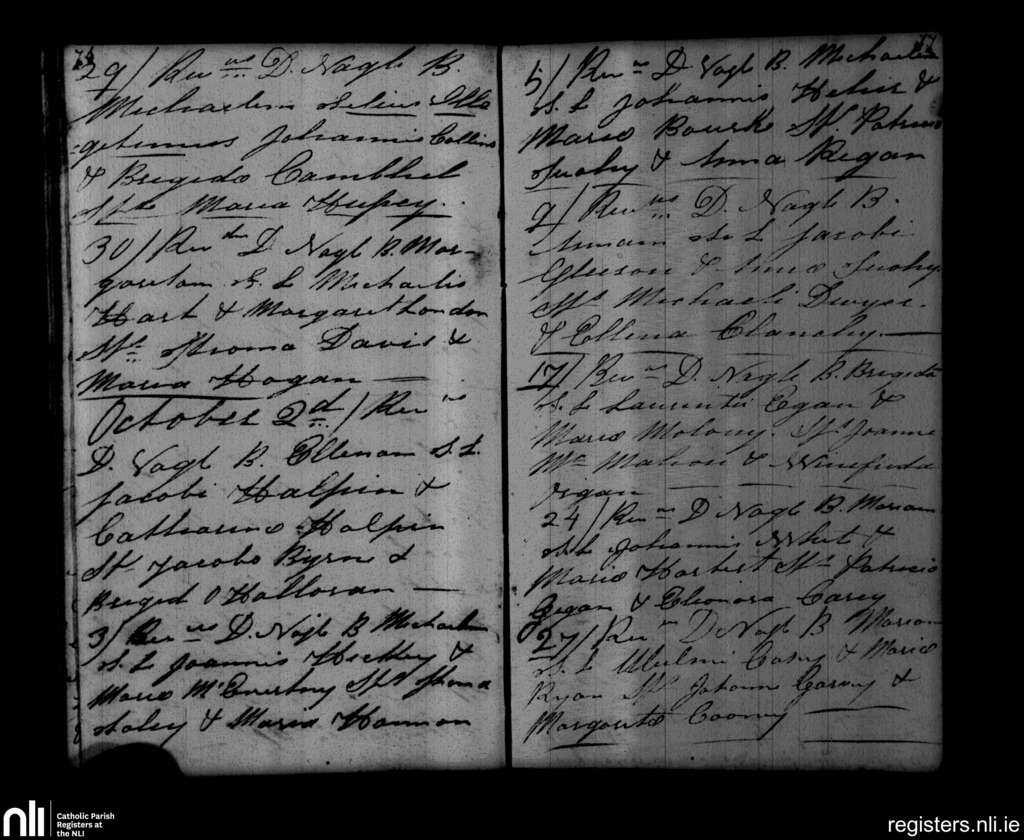 76
29/ Revus D. Nagle B.
Michaelem filius Ille
gitimus Johannis Collins
& Brigedo Cambhel
Sps Maria Hussey
30/ Revdus D Nagle B. Mar-
garetam F. L Michaelis
Hart & Margaret London
Sps Thoma Davis &
Maria Hogan
October 2d / Revus
D. Nagle B. Ellenam F. L.
Jacobi Halpin &
Catharine Halpin
Sps Jacobo Byrne &
Briged O Halloran
3/ Revus D. Nagle B Michaelem
F. L Joannis Hickey &
Maria Sps Thoma
& Maria Hannon
77
5/ Revus D Nagle B. Michaelem
F. L Johannis &
Maria Bourke Sps. Patricio
Tuohy & Anna Regan
9/ Revus D. Nagle B.
Annam F. L Jacobi
Gleeson & Anna Tuohy.
Sps Michaeli Dwyer.
& Ellena Clanchy.
17/ Revus D. Nagle B. Brigeda
F. L Laurentii Egan &
Maria Molony. Sps Joanne
Mc Mahon & Winefreda
Egan
24/ Revus D Nagle B. Mariam
F. L Johannis &
Maria Harbert Sps Patricio
Gegan & Eleonora Carey
27/ Revus D Nagle B Mariam
F. L Casey & Maria
Ryan Sps Johanne Garvey &
Margarita Cooney
nli
Catholic Parish
Registers at
the NLI
registers.nli.ie